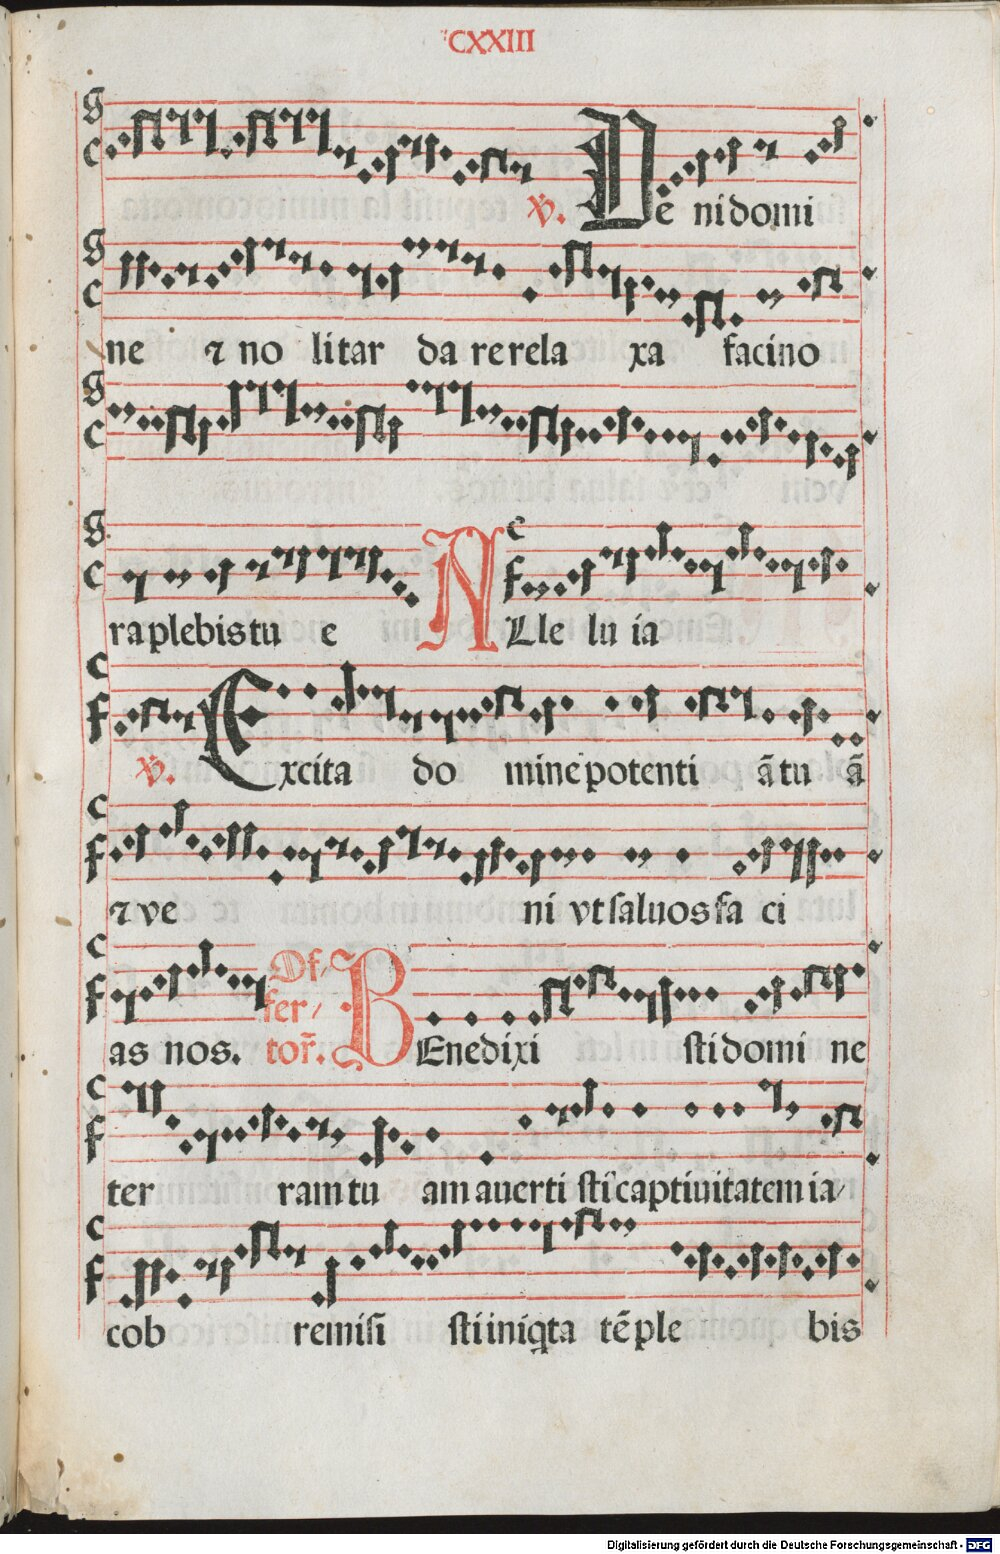 CXXIII
℣. Ve ni domi
ne ⁊ no li tar da re rela xa facino
ra plebis tu e ALle lu ia
℣. Excita do mine potenti ā tu ā
⁊ ve ni vt saluos fa ci
as nos. Of/ fer/ tor̄. BEnedixi sti domi ne
ter ram tu am auerti sti captiuitatem ia/
cob remisi sti iniq̄ta tē ple bis
Digitalisierung gefördert durch die Deutsche Forschungsgemeinschaft - DFG